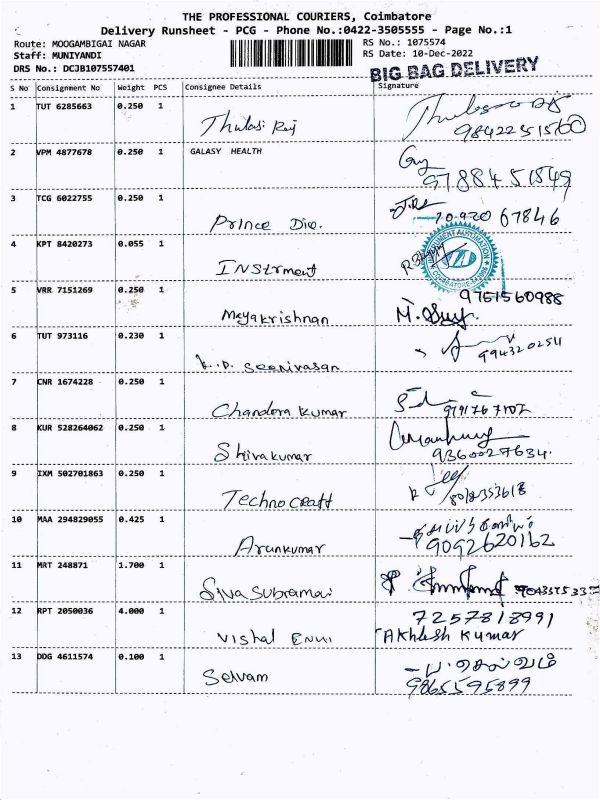 THE PROFESSIONAL COURIERS, Coimbatore
Delivery Runsheet - PCG - Phone No.:0422-3505555 - Page No.:1
Route: MOOGAMBIGAI NAGAR
RS No.: 1075574
Staff: MUNIYANDI
RS Date: 10-Dec-2022
DRS No.: DCJB107557401
BIG BAG DELIVERY
S No Consignment No Weight PCS Consignee Details Signature
1 TUT 6285663 0.250 1
Thulasi Raj
98422 51560
2 VPM 4877678 0.250 1 GALASY HEALTH
9788451549
3 TCG 6022755 0.250 1
Prince Die. 67846
4 KPT 8420273 0.055 1
INStrment
5 VRR 7151269 0.250 1 9751560988
Mayakrishnan
6 TUT 973116 0.230 1
K.P. Seenivasan 994320254
7 CNR 1674228 0.250 1
Chandera Kumar
8 KUR 528264062 0.250 1
Shivakumar 9360027634.
9 IXM 502701863 0.250 1
Techno Craft
10 MAA 294829055 0.425 1
Arunkumar 9092620162
11 MRT 248871 1.700 1
Siva Subramai
12 RPT 2050036 4.000 1 7257818991
Vishal Akhlesh Kumar
13 DDG 4611574 0.100 1
Selvam 9865595899